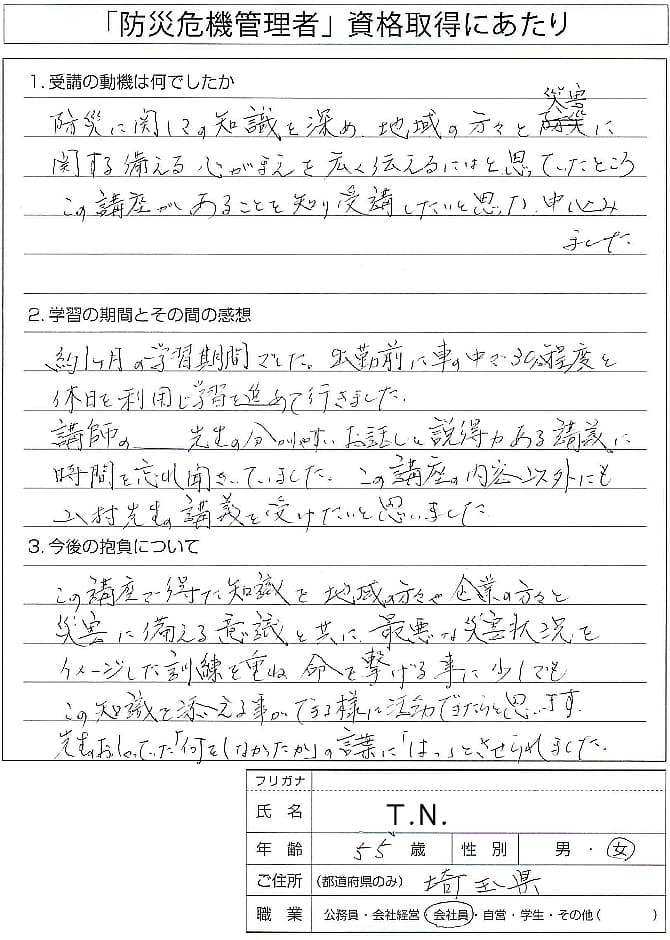 「防災危機管理者」資格取得にあたり
1. 受講の動機は何でしたか
災害
防災に関しての知識を深め、地域の方々と防災に
関する備える心がまえを広く伝えるにはと思っていたところ
この講座があることを知り受講したいと思い、申込み
ました
2. 学習の期間とその間の感想
約1ヶ月の学習期間でした。出勤前に車の中で30分程度と
休日を利用し学習を進めて行きました。
講師の 先生の分かりやすいお話しと説得力ある講義に
時間を忘れ聞きいていました。この講座の内容以外にも
山村先生の講義を受けたいと思いました
3. 今後の抱負について
この講座で得た知識を地域の方々や企業の方々と
災害に備える意識と共に、最悪な災害状況を
イメージした訓練を重ね命を繋げる事に少しでも
この知識を添える事ができる様に活動できたらと思います。
先生のおっしゃっていた「何をしなかったか」の言葉に「はっ」とさせられました。
フリガナ
氏名 T.N.
年齢 55歳 性別 男・女
ご住所 (都道府県のみ) 埼玉県
職業 公務員・会社経営・会社員・自営・学生・その他( )